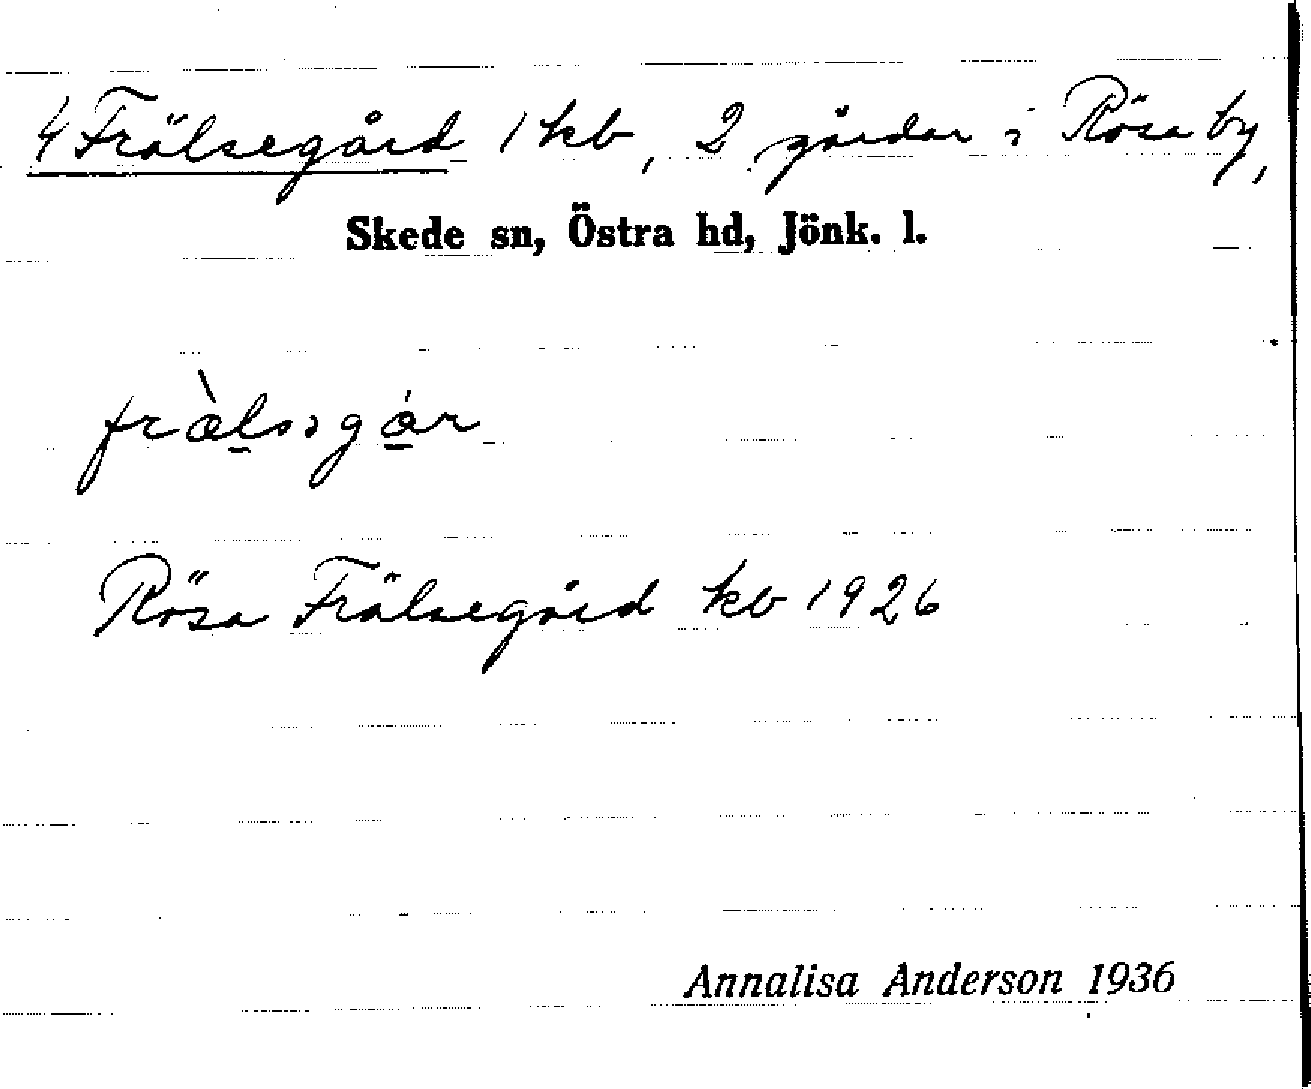 4 Frälsegård 1 kb, 2 gårdar i Rösa by,
Skede sn, Östra hd, Jönk. l.
fràlsəgár
Rösa Frälsegård kb 1926
Annalisa Anderson 1936